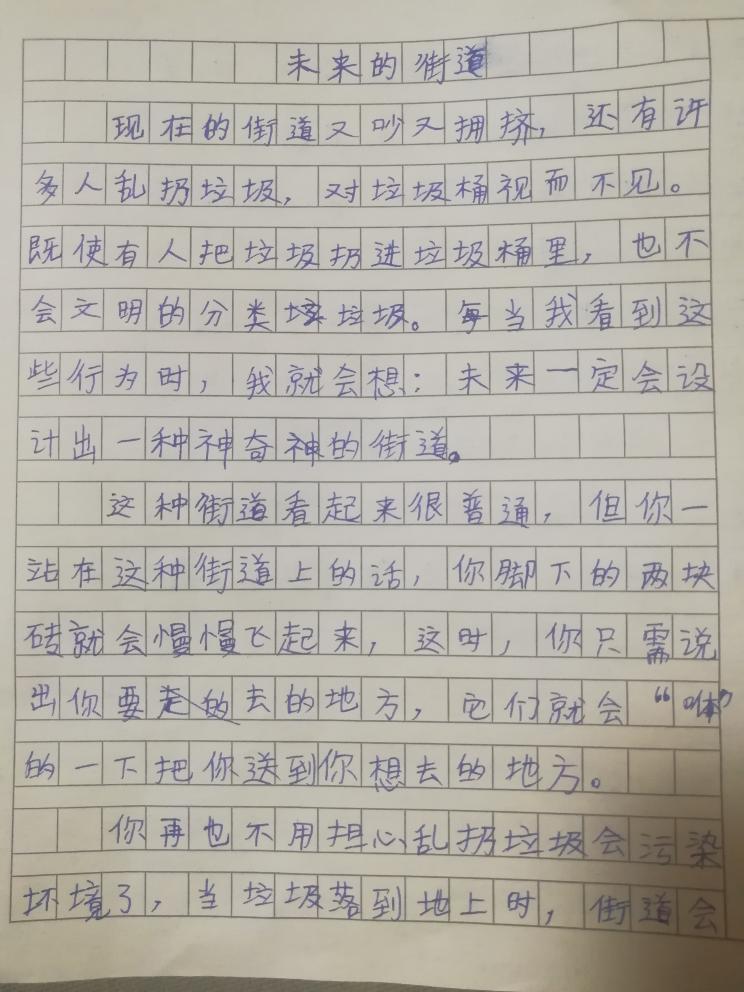 未来的街道
现在的街道又吵又拥挤，还有许
多人乱扔垃圾，对垃圾桶视而不见。
既使有人把垃圾扔进垃圾桶里，也不
会文明的分类垃圾。每当我看到这
些行为时，我就会想：未来一定会设
计出一种神奇神的街道。
这种街道看起来很普通，但你一
站在这种街道上的话，你脚下的两块
砖就会慢慢飞起来，这时，你只需说
出你要去的地方，它们就会“咻”
的一下把你送到你想去的地方。
你再也不用担心乱扔垃圾会污染
坏境了，当垃圾落到地上时，街道会